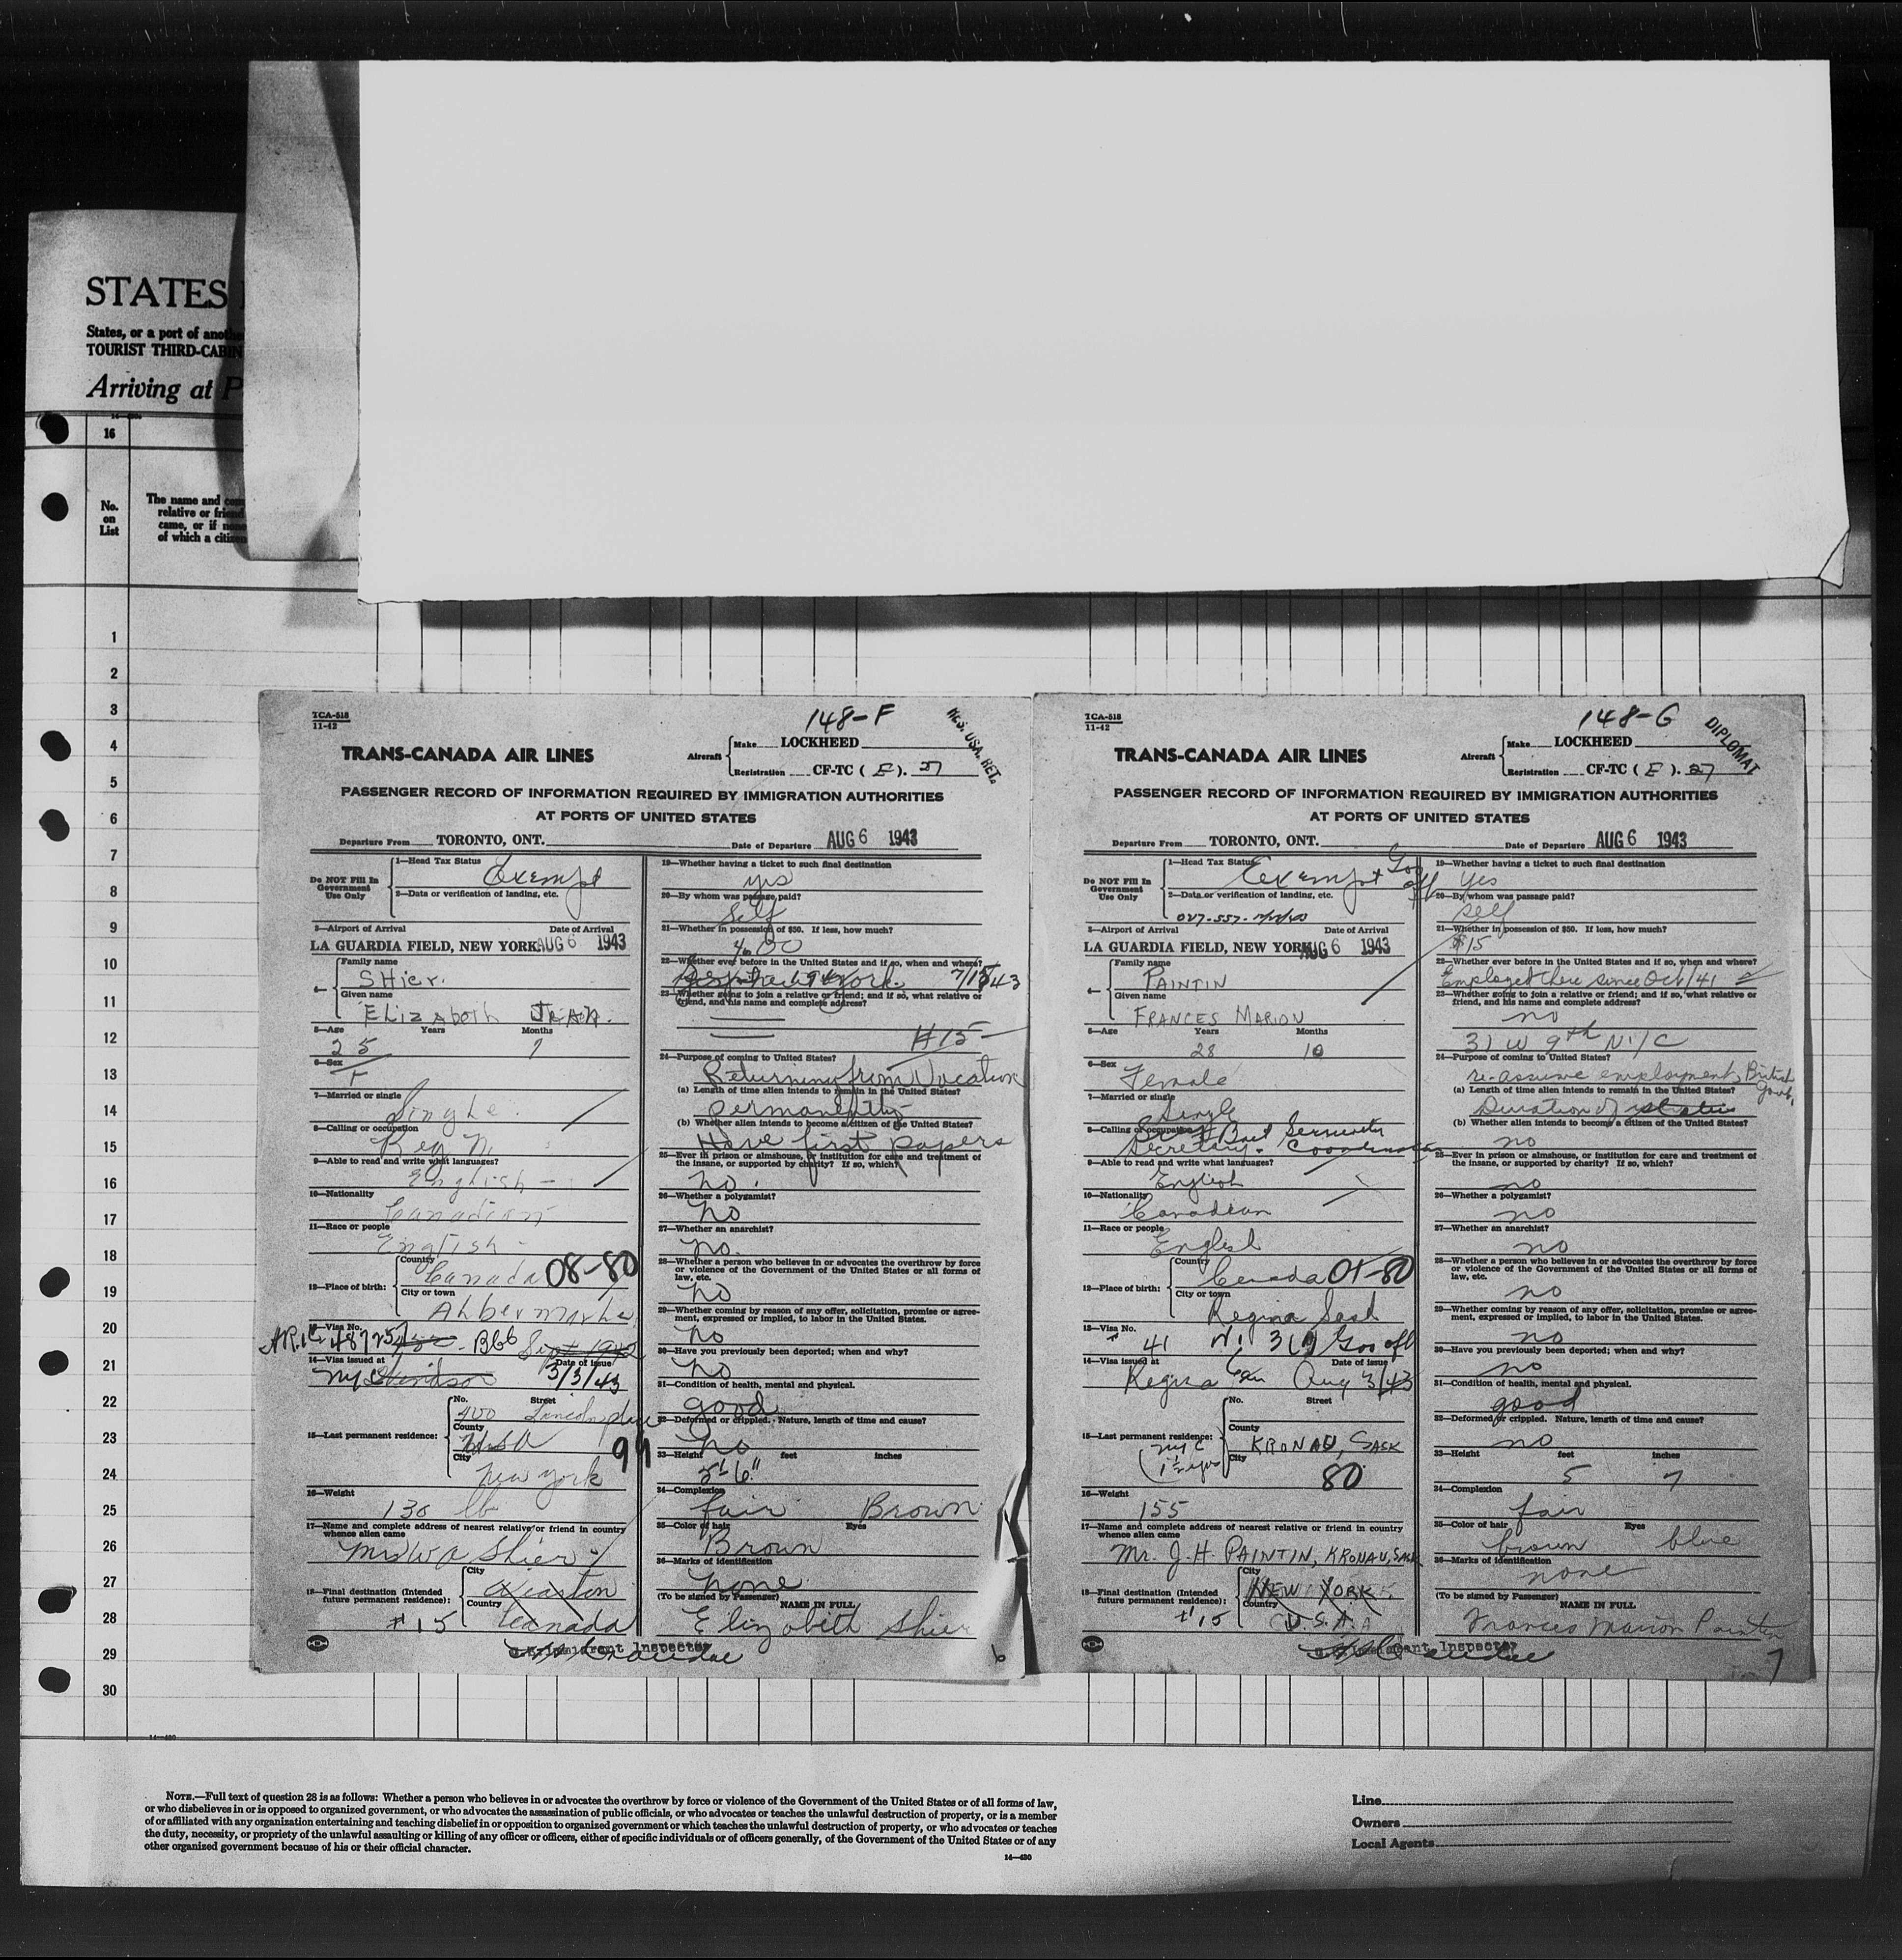 STATES
States, or a port of
TOURIST THIRD-CABIN
Arriving at
16
No.
on
List
The name and
relative or
came, or if
of which a
1
2
3
4
5
6
7
8
9
10
11
12
13
14
15
16
17
18
19
20
21
22
23
24
25
26
27
28
29
30
TCA-518
11-42
148-F
RES. USA. RET.
TRANS-CANADA AIR LINES
Aircraft
Make LOCKHEED
Registration CF-TC ( E ). 27
PASSENGER RECORD OF INFORMATION REQUIRED BY IMMIGRATION AUTHORITIES
AT PORTS OF UNITED STATES
Departure From TORONTO, ONT. Date of Departure AUG 6 1943
Do NOT Fill In
Government
Use Only
1—Head Tax Status Exempt
2—Data or verification of landing, etc.
3—Airport of Arrival Date of Arrival
LA GUARDIA FIELD, NEW YORK AUG 6 1943
4—
Family name
SHier.
Given name
ELizAbeth JEAN.
5—Age Years Months
25 7
6—Sex
F
7—Married or single
Single.
8—Calling or occupation
Reg N.
9—Able to read and write what languages?
English -
10—Nationality
Canadian
11—Race or people
English -
12—Place of birth:
Country
Canada 08-80
City or town
13—Visa No.
48725 B66 Sept 1942
14—Visa issued at Date of issue
NYC Windsor 3/3/43
15—Last permanent residence:
No. Street
400 Lincoln place
County
USA
City
New York
16—Weight
130 lb
17—Name and complete address of nearest relative or friend in country
whence alien came
Mrs W A Shier
18—Final destination (Intended
future permanent residence):
City
Country
Canada
#15
Immigrant Inspector
19—Whether having a ticket to such final destination
yes
20—By whom was passage paid?
Self
21—Whether in possession of $50. If less, how much?
22—Whether ever before in the United States and if so, when and where?
York. 7/15/43
23—Whether going to join a relative or friend; and if so, what relative or
friend, and his name and complete address?
#15
24—Purpose of coming to United States?
Returning from Vacation
(a) Length of time alien intends to remain in the United States?
permanently
(b) Whether alien intends to become a citizen of the United States?
Have first papers
25—Ever in prison or almshouse, or institution for care and treatment of
the insane, or supported by charity? If so, which?
no.
26—Whether a polygamist?
no
27—Whether an anarchist?
no.
28—Whether a person who believes in or advocates the overthrow by force
or violence of the Government of the United States or all forms of
law, etc.
no
29—Whether coming by reason of any offer, solicitation, promise or agree-
ment, expressed or implied, to labor in the United States.
no
30—Have you previously been deported; when and why?
no
31—Condition of health, mental and physical.
good
32—Deformed or crippled. Nature, length of time and cause?
no
33—Height feet inches
5' 6"
34—Complexion
fair Brown
35—Color of hair Eyes
Brown
36—Marks of identification
none
(To be signed by Passenger) NAME IN FULL
Elizabeth Shier
6
TCA-518
11-42
148-G
DIPLOMAT
TRANS-CANADA AIR LINES
Aircraft
Make LOCKHEED
Registration CF-TC ( E ). 27
PASSENGER RECORD OF INFORMATION REQUIRED BY IMMIGRATION AUTHORITIES
AT PORTS OF UNITED STATES
Departure From TORONTO, ONT. Date of Departure AUG 6 1943
Do NOT Fill In
Government
Use Only
1—Head Tax Status Exempt Gov off
2—Data or verification of landing, etc.
3—Airport of Arrival Date of Arrival
LA GUARDIA FIELD, NEW YORK AUG 6 1943
4—
Family name
PAINTIN
Given name
FRANCES MARION
5—Age Years Months
28 10
6—Sex
Female
7—Married or single
Single
8—Calling or occupation
Secretary - Coordinator
9—Able to read and write what languages?
English
10—Nationality
Canadian
11—Race or people
English
12—Place of birth:
Country
Canada 01-80
City or town
Regina Sask
13—Visa No.
41 3(1) Gov off
14—Visa issued at Date of issue
Regina Can Aug 3/43
15—Last permanent residence:
No. Street
County
KRONAU, SASK
City
(NYC
1½ yrs)
80
16—Weight
155
17—Name and complete address of nearest relative or friend in country
whence alien came
Mr. J.H. PAINTIN, KRONAU, SASK
18—Final destination (Intended
future permanent residence):
City
NEW YORK
Country
U.S.A.
#15
Immigrant Inspector
19—Whether having a ticket to such final destination
yes
20—By whom was passage paid?
self
21—Whether in possession of $50. If less, how much?
$15
22—Whether ever before in the United States and if so, when and where?
Employed there since Oct/41
23—Whether going to join a relative or friend; and if so, what relative or
friend, and his name and complete address?
no
31 W 9th N.Y.C
24—Purpose of coming to United States?
re-assume employment British Govt.
(a) Length of time alien intends to remain in the United States?
Duration of status
(b) Whether alien intends to become a citizen of the United States?
no
25—Ever in prison or almshouse, or institution for care and treatment of
the insane, or supported by charity? If so, which?
no
26—Whether a polygamist?
no
27—Whether an anarchist?
no
28—Whether a person who believes in or advocates the overthrow by force
or violence of the Government of the United States or all forms of
law, etc.
no
29—Whether coming by reason of any offer, solicitation, promise or agree-
ment, expressed or implied, to labor in the United States.
no
30—Have you previously been deported; when and why?
no
31—Condition of health, mental and physical.
good
32—Deformed or crippled. Nature, length of time and cause?
no
33—Height feet inches
5 7
34—Complexion
fair
35—Color of hair Eyes
brown blue
36—Marks of identification
none
(To be signed by Passenger) NAME IN FULL
Frances Marion Paintin
7
NOTE.—Full text of question 28 is as follows: Whether a person who believes in or advocates the overthrow by force or violence of the Government of the United States or of all forms of law,
or who disbelieves in or is opposed to organized government, or who advocates the assassination of public officials, or who advocates or teaches the unlawful destruction of property, or is a member
of or affiliated with any organization entertaining and teaching disbelief in or opposition to organized government or which teaches the unlawful destruction of property, or who advocates or teaches
the duty, necessity, or propriety of the unlawful assaulting or killing of any officer or officers, either of specific individuals or of officers generally, of the Government of the United States or of any
other organized government because of his or their official character.
14—430
Line
Owners
Local Agents